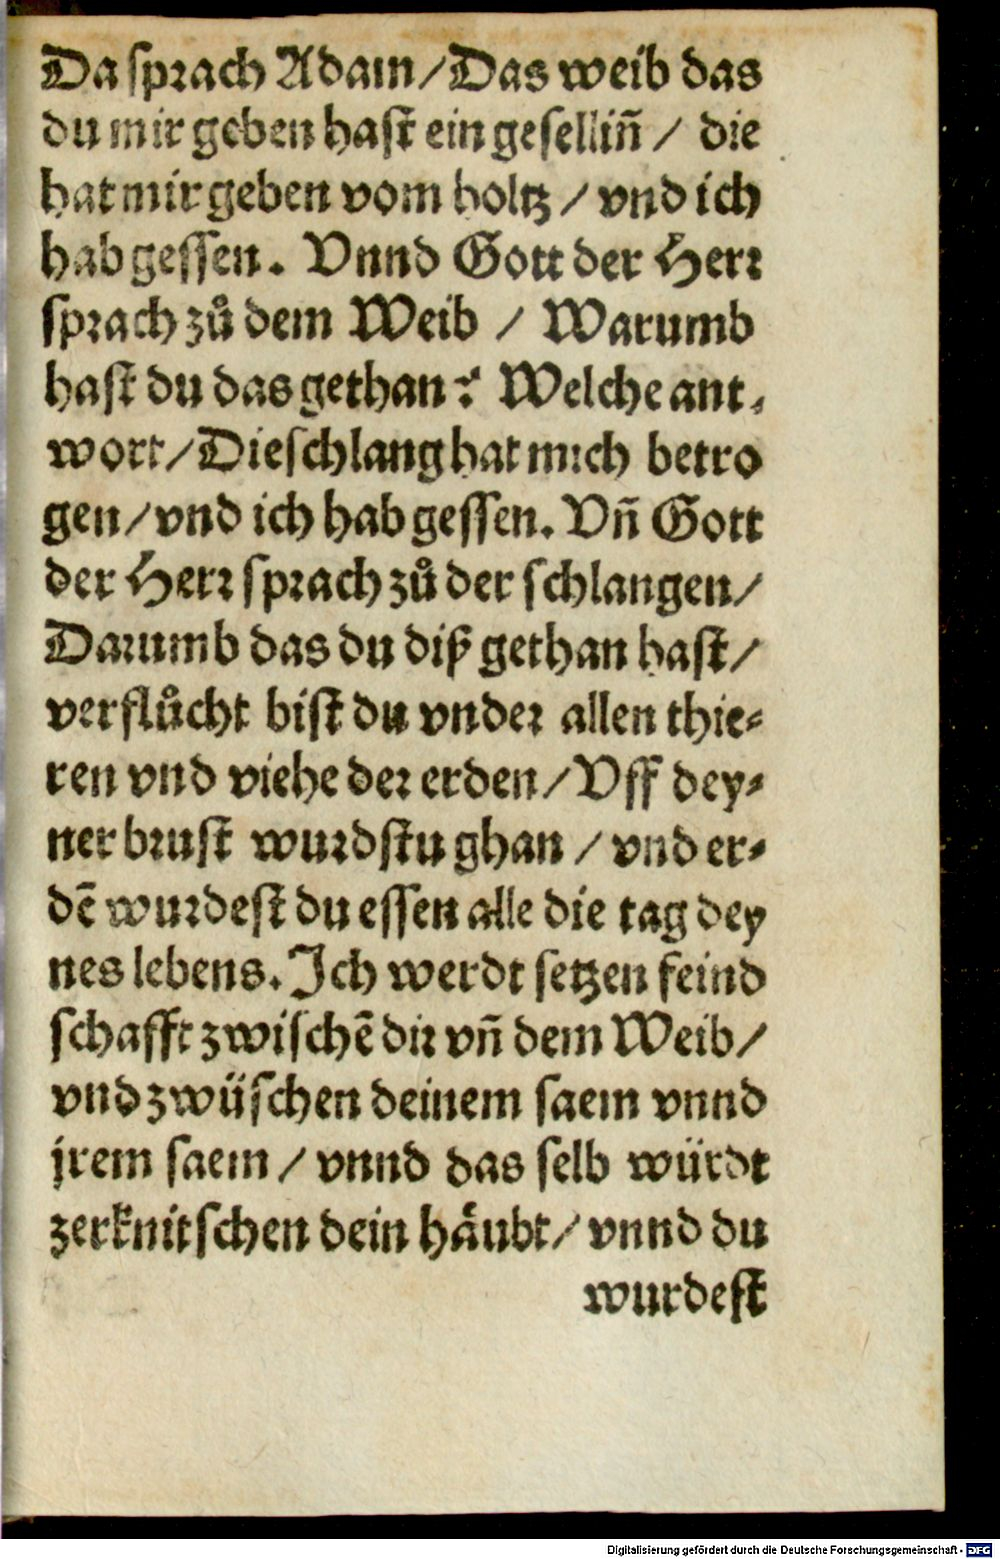 Da sprach Adam / Das weib das
du mir geben hast ein gesellin̄ / die
hat mir geben vom holtz / vnd ich
hab gessen. Vnnd Gott der Herr
sprach zů dem Weib / Warumb
hast du das gethan? Welche ant⸗
wort / Die schlang hat mich betro
gen / vnd ich hab gessen. Vn̄ Gott
der Herr sprach zů der schlangen /
Darumb das du diß gethan hast /
verflůcht bist du vnder allen thie⸗
ren vnd viehe der erden / Vff dey⸗
ner brust wurdstu ghan / vnd er⸗
dē wurdest du essen alle die tag dey
nes lebens. Ich werdt setzen feind
schafft zwischē dir vn̄ dem Weib /
vnd zwüschen deinem saem vnnd
jrem saem / vnnd das selb würdt
zerknitschen dein häubt / vnnd du
wurdest
Digitalisierung gefördert durch die Deutsche Forschungsgemeinschaft - DFG